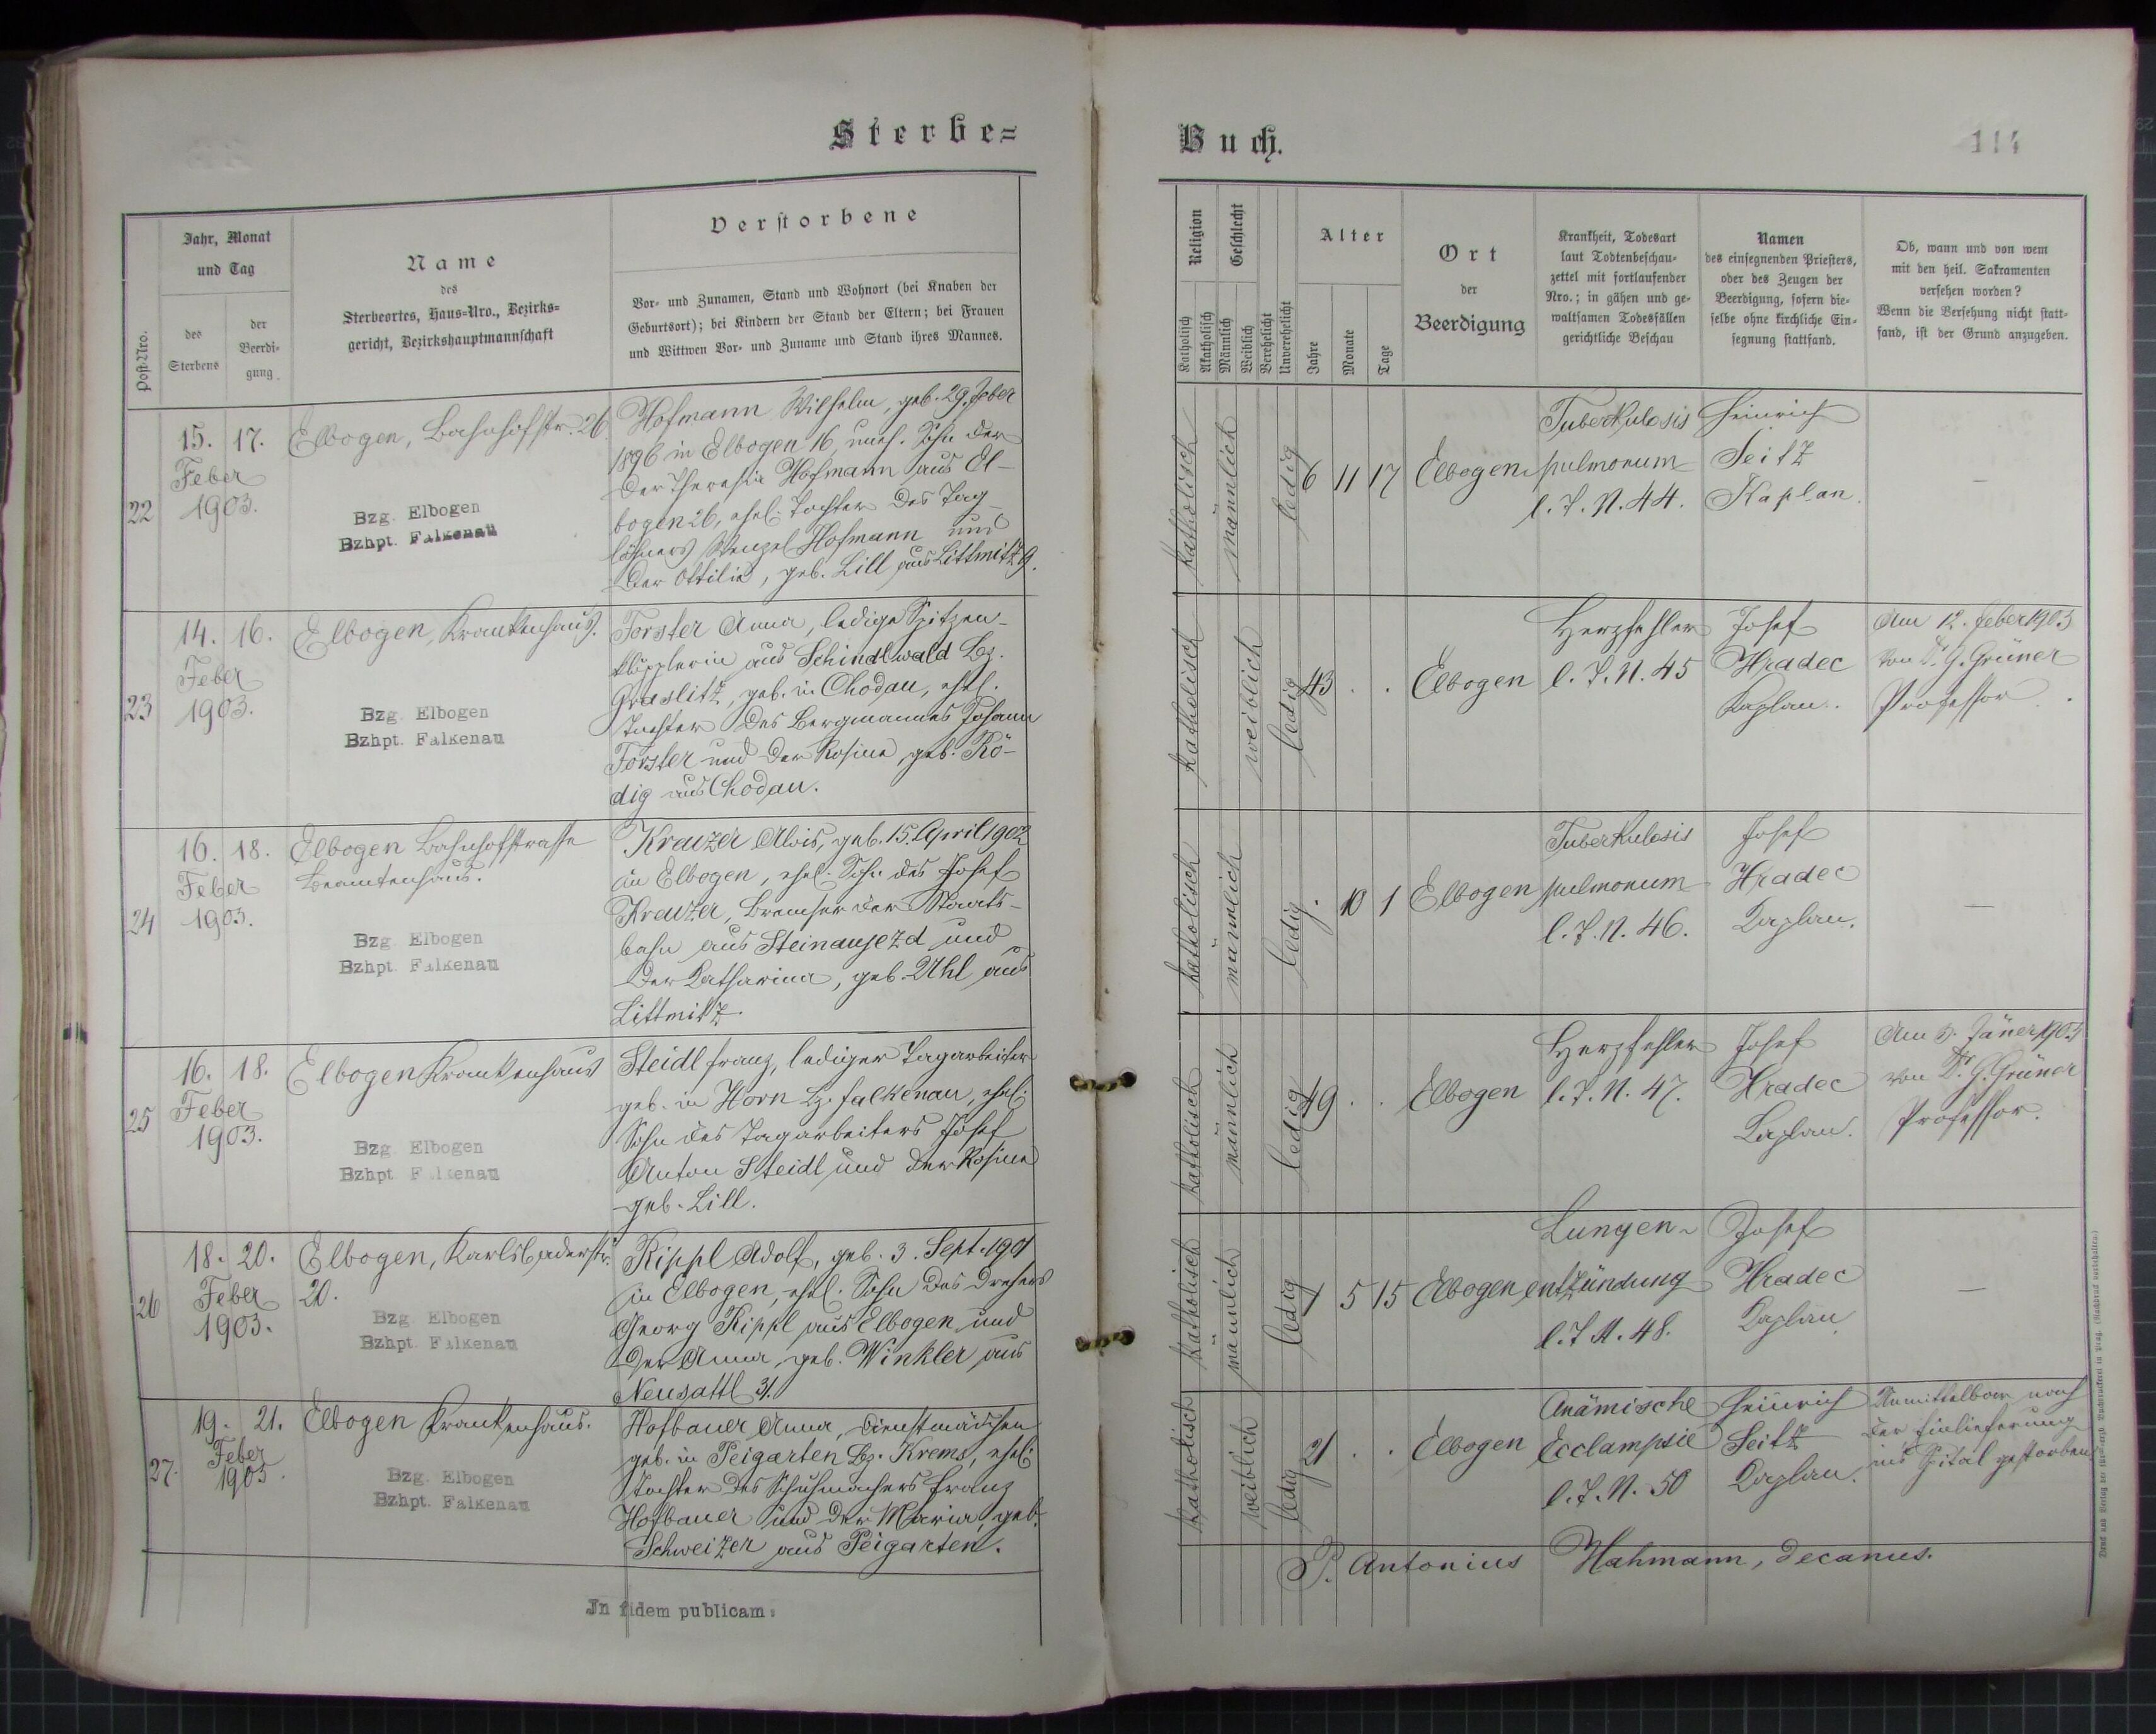 Sterbe=
Buch.
114
Post-Nro.
Jahr, Monat
und Tag
des
Sterbens
der
Beerdi-
gung
Name
des
Sterbeortes, Haus-Nro., Bezirks-
gericht, Bezirkshauptmannschaft
Verstorbene
Vor- und Zunamen, Stand und Wohnort (bei Knaben der
Geburtsort); bei Kindern der Stand der Eltern; bei Frauen
und Wittwen Vor- und Zuname und Stand ihres Mannes.
Religion
Katholisch
Akatholisch
Geschlecht
Männlich
Weiblich
Verehelicht
Unverehelicht
Alter
Jahre
Monate
Tage
Ort
der
Beerdigung
Krankheit, Todesart
laut Todtenbeschau-
zettel mit fortlaufender
Nro.; in gähen und ge-
waltsamen Todesfällen
gerichtliche Beschau
Namen
des einsegnenden Priesters,
oder des Zeugen der
Beerdigung, sofern die-
selbe ohne kirchliche Ein-
segnung stattfand.
Ob, wann und von wem
mit den heil. Sakramenten
versehen worden?
Wenn die Versehung nicht statt-
fand, ist der Grund anzugeben.
22
15. 17.
Feber
1903.
Elbogen, Bahnhofstr. 26.
Bzg. Elbogen
Bzhpt. Falkenau
Hofmann Wilhelm, geb. 29. Feber
1896 in Elbogen 16, uneh. Sohn der
der Theresia Hofmann aus El-
bogen 26, ehel. Tochter des Tag-
löhners Wenzel Hofmann und
der Ottilie, geb. Lill aus Littmitz 9.
katholisch
männlich
ledig
6 11 17
Elbogen
Tuberkulosis
pulmonum
l. J. N. 44.
Heinrich
Seitz
Kaplan.
—
23
14. 16.
Feber
1903.
Elbogen, Krankenhaus.
Bzg. Elbogen
Bzhpt. Falkenau
Forster Anna, ledige Spitzen-
klöpplerin aus Schindlwald Bz.
Graslitz, geb. in Chodau, ehel.
Tochter des Bergmannes Johann
Forster und der Rosina, geb. Rö-
dig aus Chodau.
katholisch
weiblich
ledig
43 . .
Elbogen
Herzfehler
l. J. N. 45
Josef
Hradec
Kaplan.
Am 12. Feber 1903
von Dr. G. Grüner
Professor.
24
16. 18.
Feber
1903.
Elbogen Bahnhofstrasse
Beamtenhaus.
Bzg. Elbogen
Bzhpt. Falkenau
Kreuzer Alois, geb. 15. April 1902
in Elbogen, ehel. Sohn des Josef
Kreuzer, Bremser der Staats-
bahn aus Steinaujezd und
der Katharina, geb. Uhl aus
Littmitz.
katholisch
männlich
ledig
. 10 1
Elbogen
Tuberkulosis
pulmonum
l. J. N. 46.
Josef
Hradec
Kaplan.
—
25
16. 18.
Feber
1903.
Elbogen Krankenhaus
Bzg. Elbogen
Bzhpt. Falkenau
Steidl Franz, lediger Tagarbeiter
geb. in Horn Bz. Falkenau, ehel.
Sohn des Tagarbeiters Josef
Anton Steidl und der Rosina
geb. Lill.
katholisch
männlich
ledig
49 . .
Elbogen
Herzfehler
l. J. N. 47.
Josef
Hradec
Kaplan.
Am 5. Jäner 1903
von Dr. G. Grüner
Professor.
26
18. 20.
Feber
1903.
Elbogen, Karlsbaderstr.
20.
Bzg. Elbogen
Bzhpt. Falkenau
Rippl Adolf, geb. 3. Sept. 1901
in Elbogen, ehel. Sohn des Drehers
Georg Rippl aus Elbogen und
der Anna, geb. Winkler aus
Neusattl 31.
katholisch
männlich
ledig
1 5 15
Elbogen
Lungen-
entzündung
l. J. N. 48.
Josef
Hradec
Kaplan
—
27.
19. 21.
Feber
1903.
Elbogen Krankenhaus.
Bzg. Elbogen
Bzhpt. Falkenau
Hofbauer Anna, Dienstmädchen
geb. in Peigarten Bz. Krems, ehel.
Tochter des Schuhmachers Franz
Hofbauer und der Maria, geb.
Schweizer aus Peigarten.
katholisch
weiblich
ledig
21 . .
Elbogen
Anämische
Ecclampsie
l. J. N. 50
Heinrich
Seitz
Kaplan.
Unmittelbar nach
der Einlieferung
ins Spital gestorben.
In fidem publicam:
P. Antonius Hahmann, decanus.